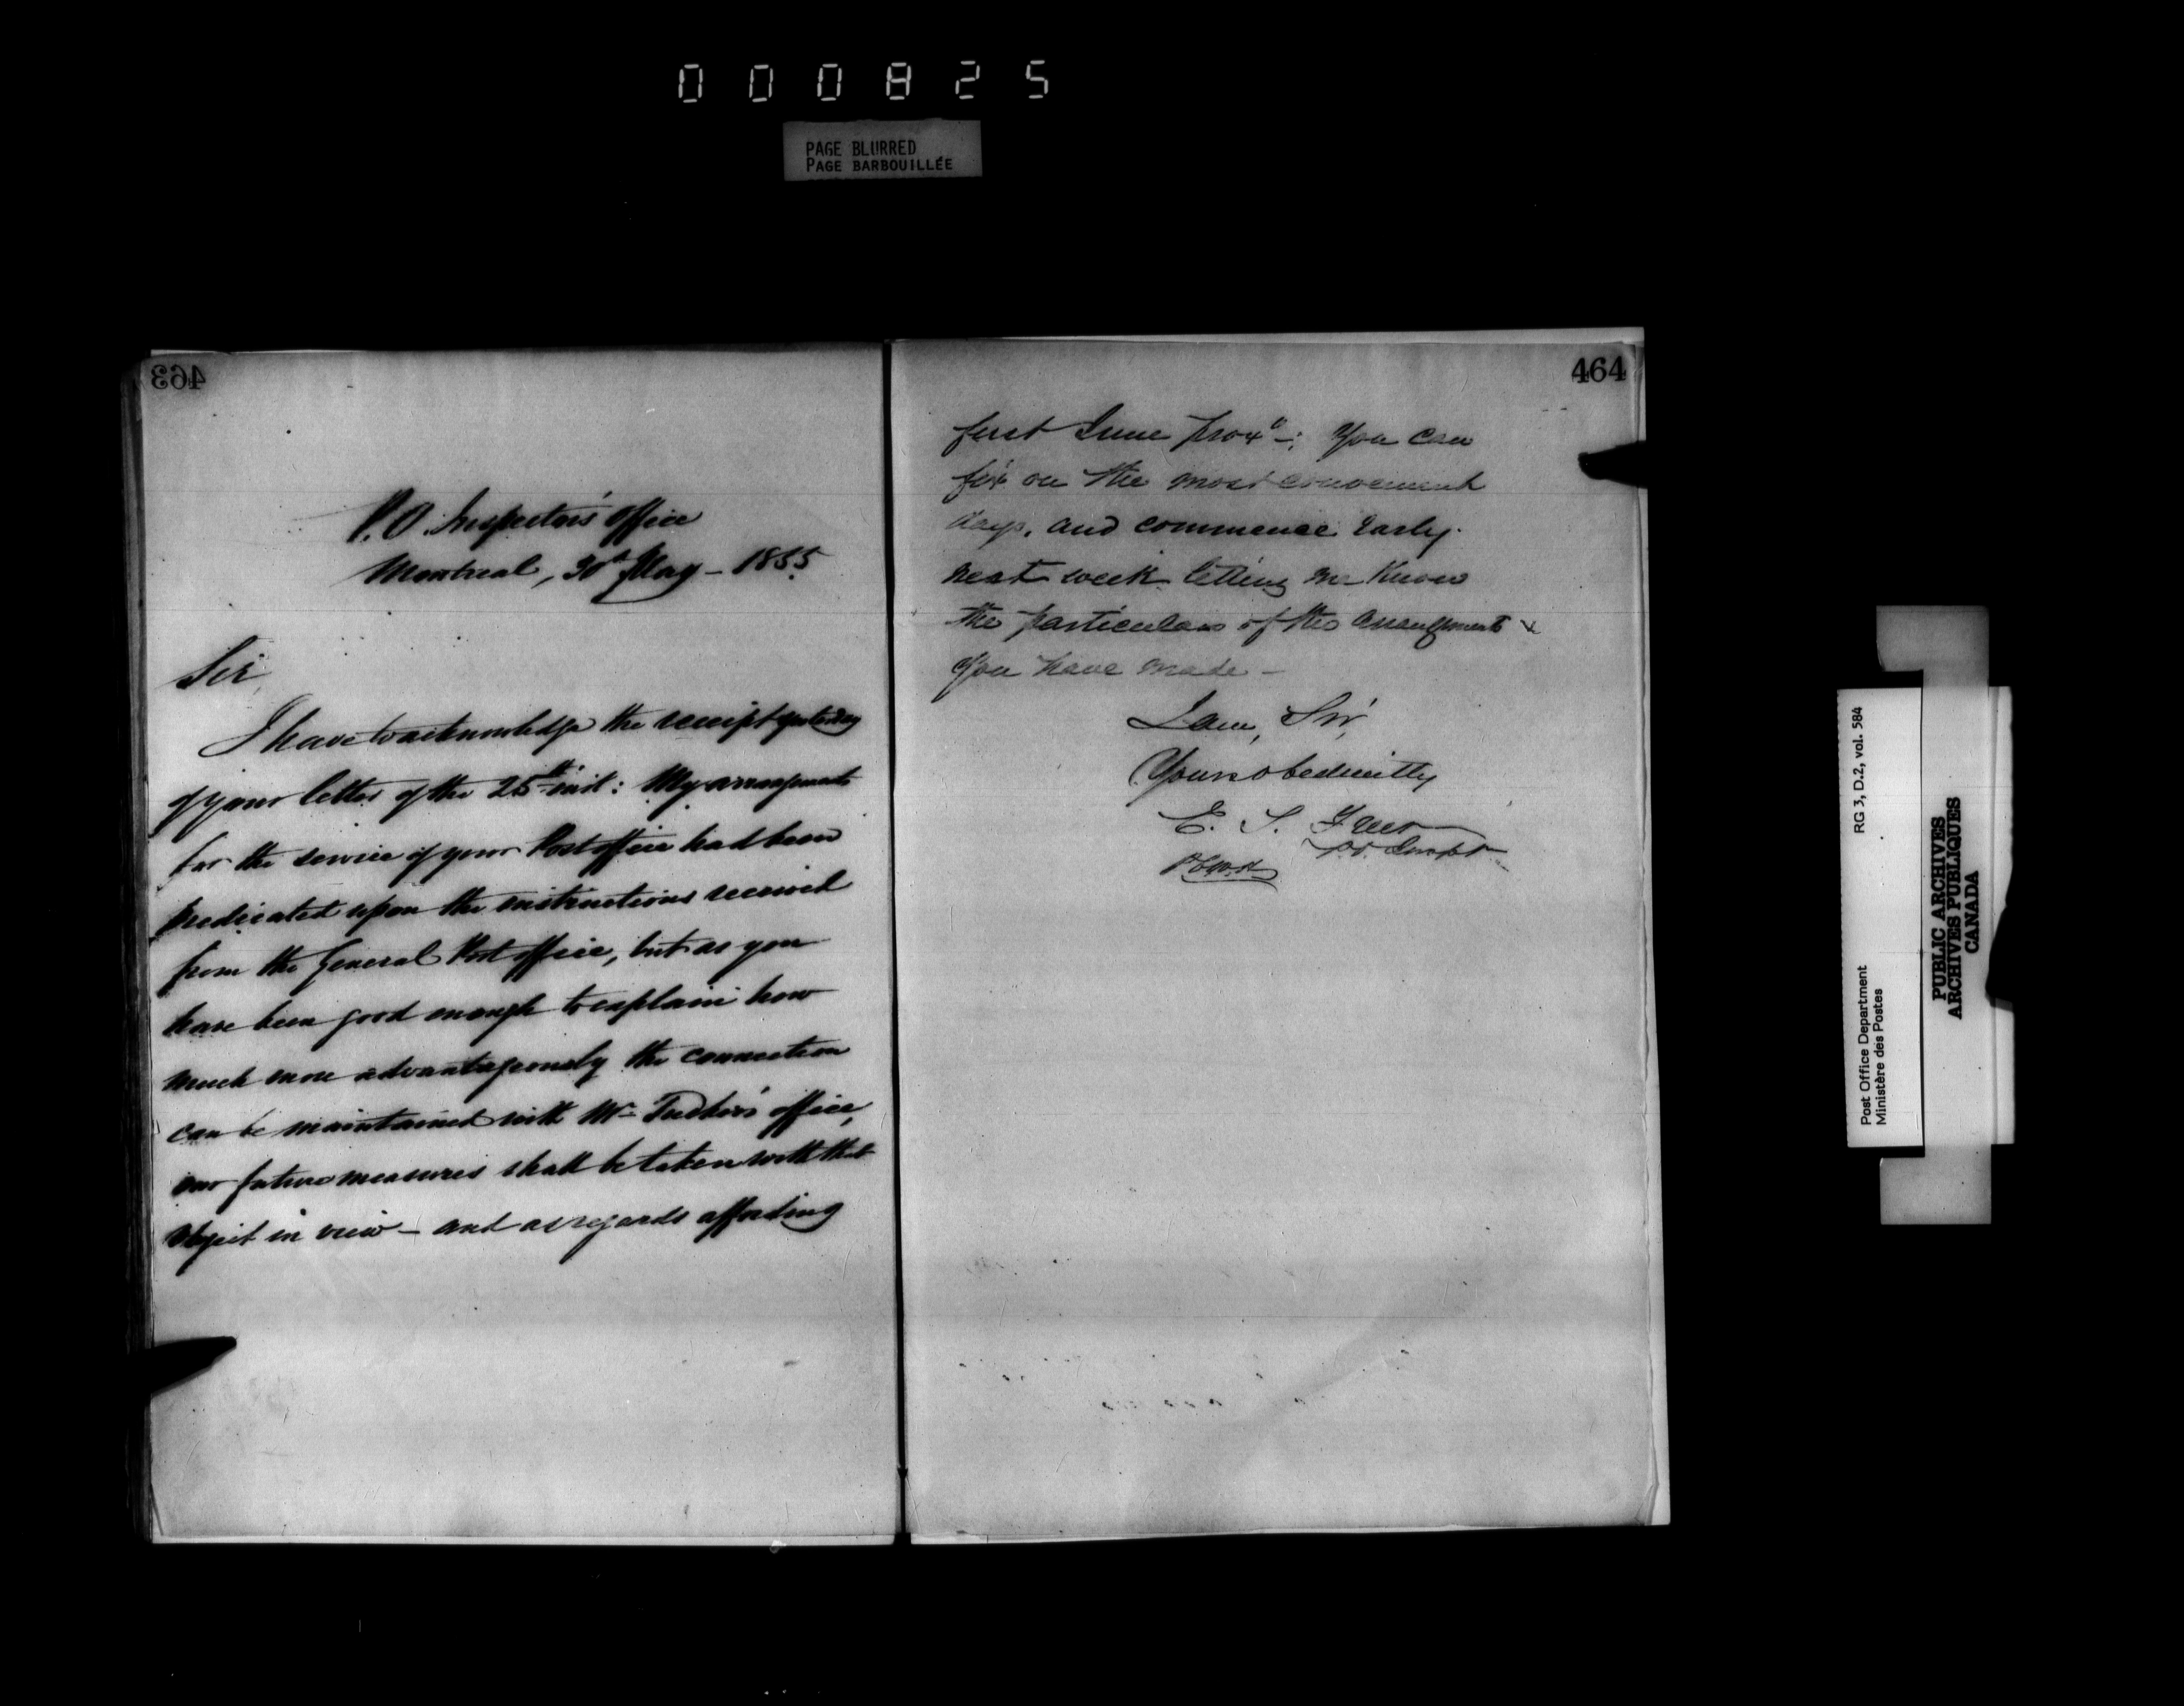 000825
PAGE BLURRED
PAGE BARBOUILLÉE
463
P.O. Inspector's office
Montreal, 30th May - 1855
Sir
I have to acknowledge the receipt yesterday
of your letter of the 25th inst: My arrangements
for the service of your Post office had been
predicated upon the instructions received
from the General Post office, but as you
have been good enough to explain how
much more advantageously the connection
can be maintained with Mr office,
our future measures shall be taken with that
object in view - and as regards affording
464
first June prox° -; You can
fix on the most convenient
days, and commence early
next week letting me know
the particulars of the arrangements
you have made -
I am, Sir,
Yours obediently
E. S. Freer
P.O. Inspr
RG 3, D.2, vol. 584
Post Office Department
Ministère des Postes
PUBLIC ARCHIVES
ARCHIVES PUBLIQUES
CANADA